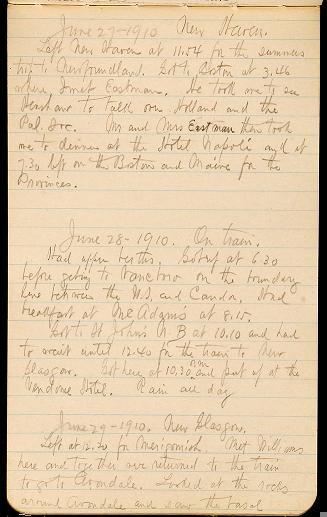 June 27-1910 New Haven.
Left New Haven at 11.54 for the summers
trip to Newfoundland. Got to Boston at 3.46
where I met Eastman. He took me to see
to talk over Holland and the
Pal. Soc. Mr and Mrs Eastman then took
me to dinner at the Hotel Napoli and at
7.30 left on the Boston and Maine for the
Provinces.
June 28-1910. On train.
Had upper berths. Got up at 6.30
before getting to Vanceboro on the boundary
line between the U.S. and Canda. Had
breakfast at McAdams at 8.15.
Got to St John's N.B at 10.10 and had
to wait until 12.40 for the train to New
Glasgow. Got here at 10.30 P.M. and put up at the
Vendome Hotel. Rain all day
June 29-1910. New Glasgow.
Left at 12.20 for Merigomish. Met Williams
here and together we returned to the train
to go to Avondale. Looked at the rocks
around Avondale and saw the basal